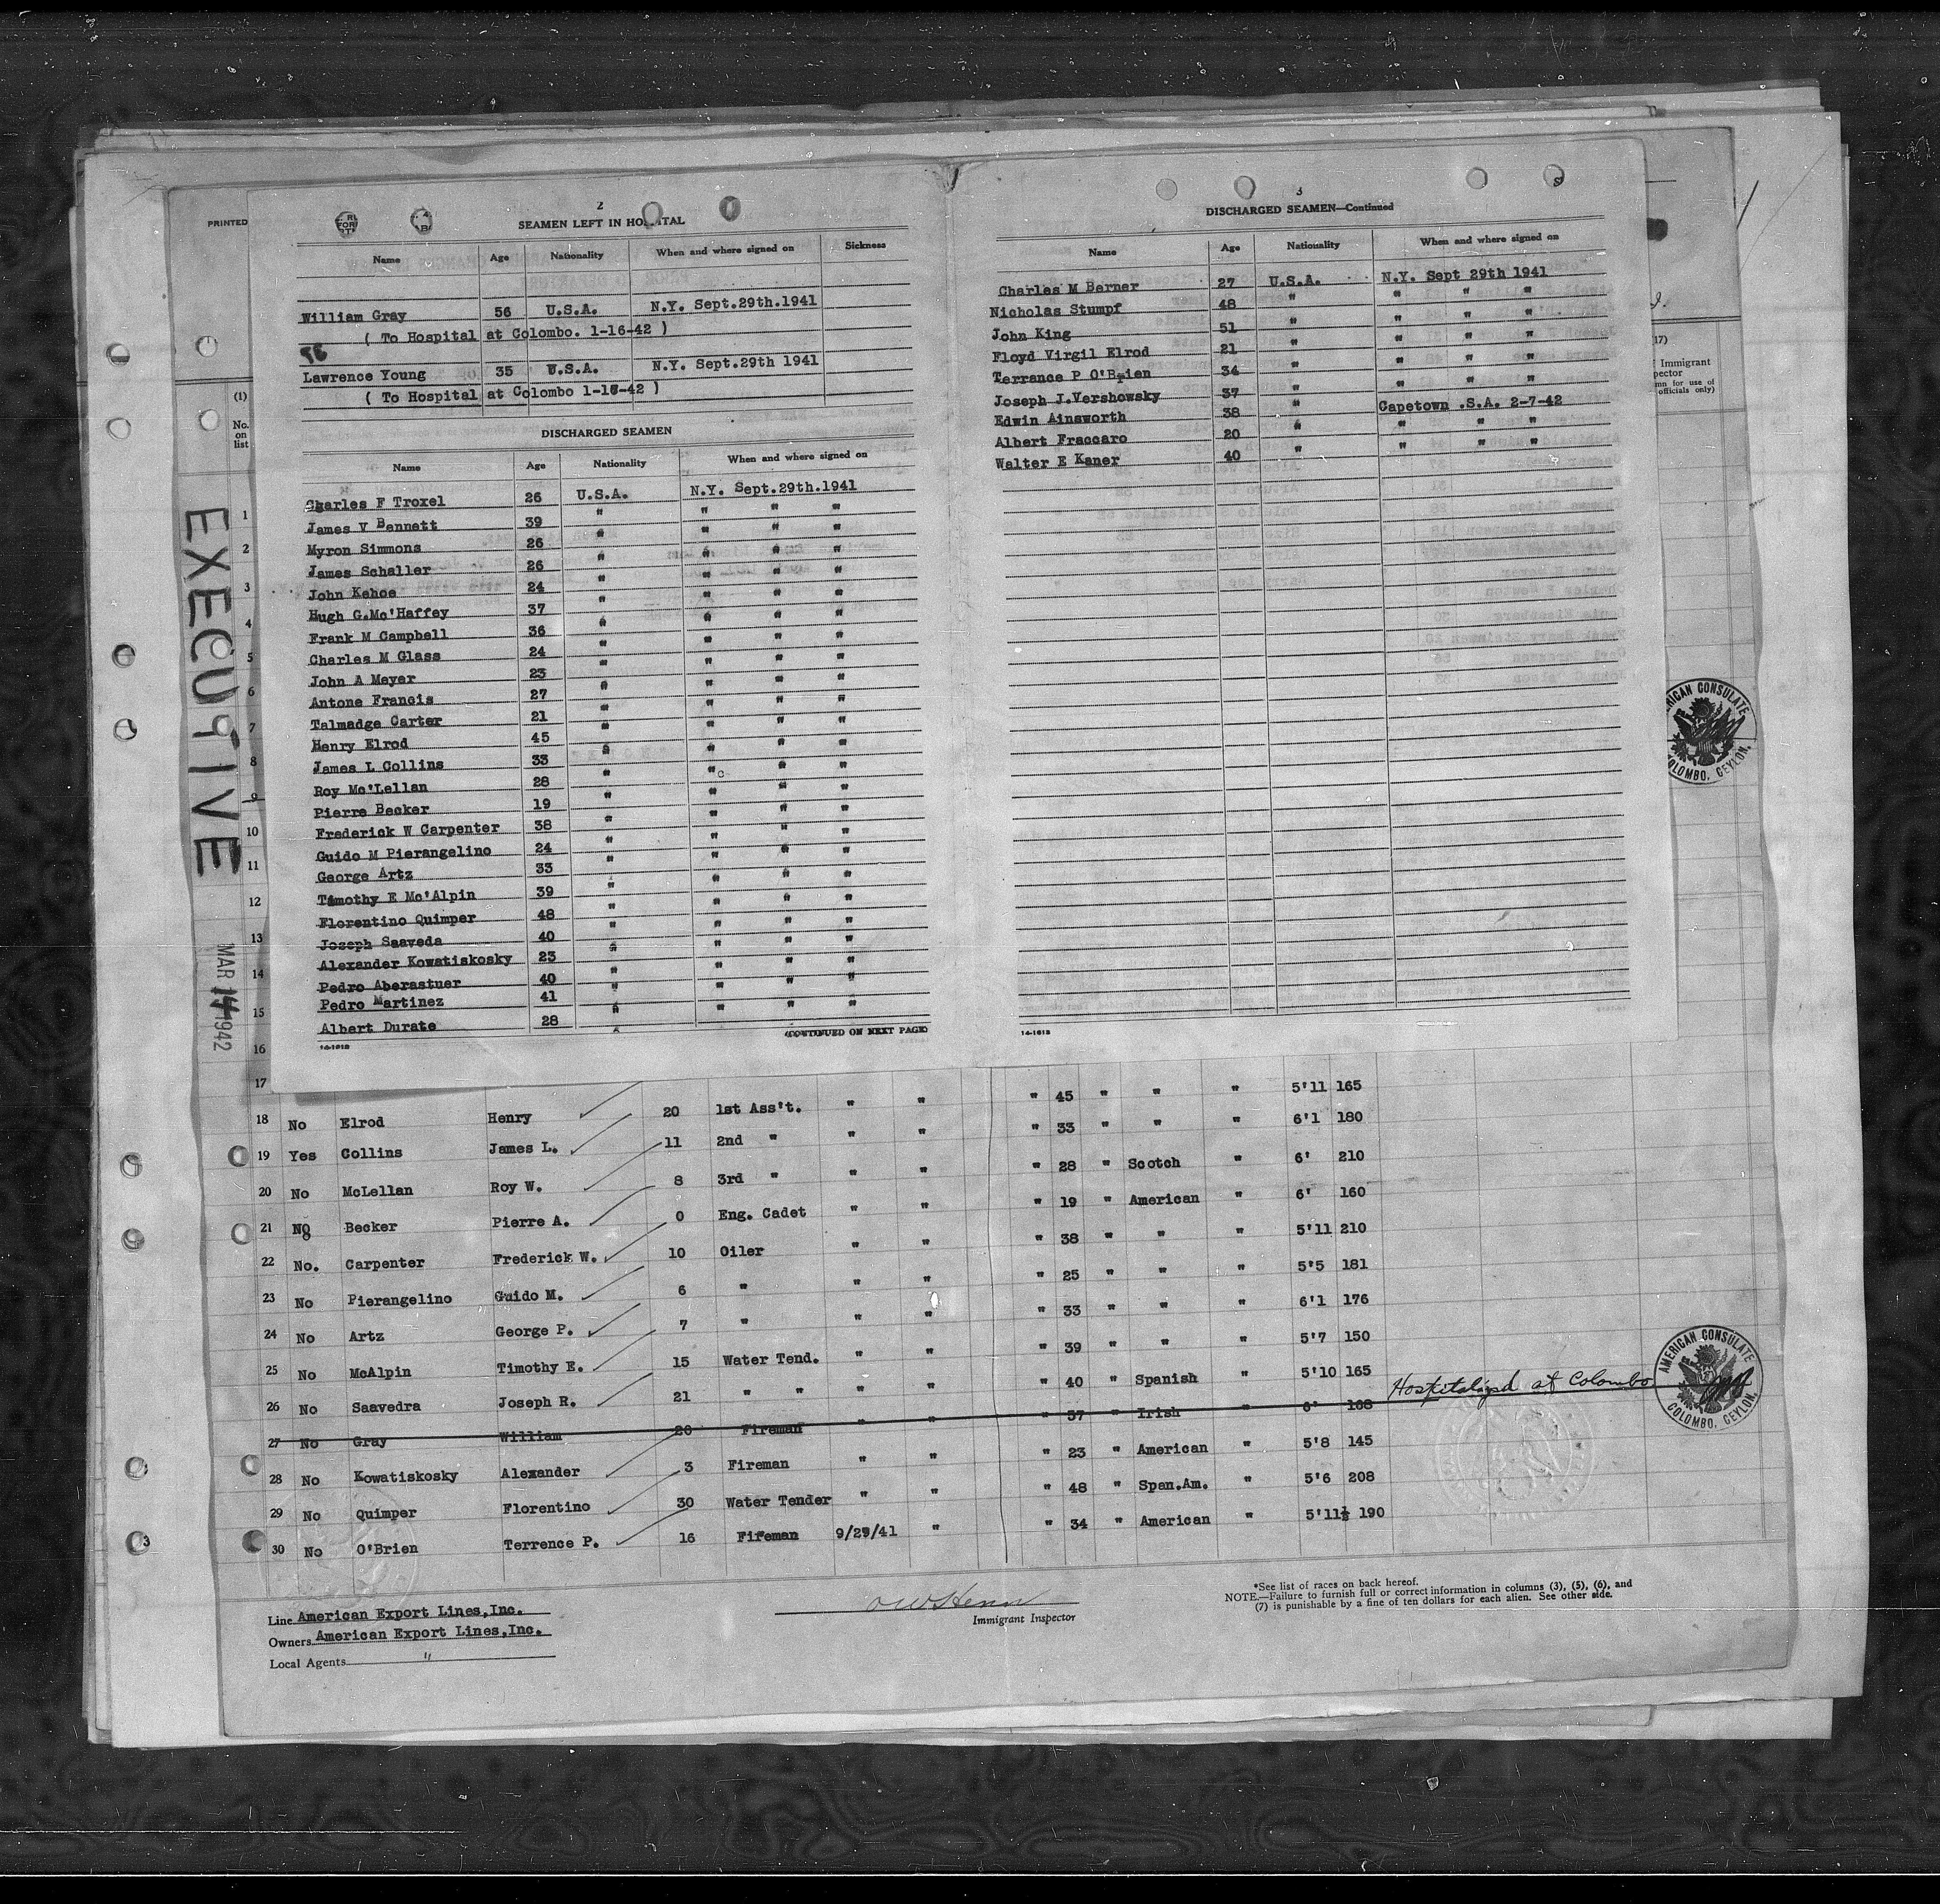 PRINTED
(1)
No. on list
EXECUTIVE
MAR 14 1942
2
SEAMEN LEFT IN HOSPITAL
Name Age Nationality When and where signed on Sickness
William Gray 56 U.S.A. N.Y. Sept.29th.1941
( To Hospital at Colombo. 1-16-42 )
Lawrence Young 35 U.S.A. N.Y. Sept.29th 1941
( To Hospital at Colombo 1-16-42 )
DISCHARGED SEAMEN
Name Age Nationality When and where signed on
Charles F Troxel 26 U.S.A. N.Y. Sept.29th.1941
James V Bennett 39 " " " "
Myron Simmons 26 " " " "
James Schaller 26 " " " "
John Kehoe 24 " " " "
Hugh G.Mc'Haffey 37 " " " "
Frank M Campbell 36 " " " "
Charles M Glass 24 " " " "
John A Meyer 23 " " " "
Antone Francis 27 " " " "
Talmadge Carter 21 " " " "
Henry Elrod 45 " " " "
James L Collins 33 " " " "
Roy Mc'Lellan 28 " " " "
Pierre Becker 19 " " " "
Frederick W Carpenter 38 " " " "
Guido M Pierangelino 24 " " " "
George Artz 33 " " " "
Timothy E Mc'Alpin 39 " " " "
Florentino Quimper 48 " " " "
Joseph Saaveda 40 " " " "
Alexander Kowatiskosky 23 " " " "
Pedro Aberastuer 40 " " " "
Pedro Martinez 41 " " " "
Albert Durate 28 "
14-1612 (CONTINUED ON NEXT PAGE)
3
DISCHARGED SEAMEN—Continued
Name Age Nationality When and where signed on
Charles M Berner 27 U.S.A. N.Y. Sept 29th 1941
Nicholas Stumpf 48 " " " "
John King 51 " " " "
Floyd Virgil Elrod 21 " " " "
Terrance P O'Brien 34 " " " "
Joseph J.Vershowsky 37 " " " "
Edwin Ainsworth 38 " Capetown .S.A. 2-7-42
Albert Fraccaro 20 " " " "
Walter E Kaner 40 " " " "
14-1612
17)
Immigrant
pector
mn for use of
officials only)
AMERICAN CONSULATE COLOMBO, CEYLON.
1
2
3
4
5
6
7
8
9
10
11
12
13
14
15
16
17
18 No Elrod Henry 20 1st Ass't. " " " 45 " " " 5'11 165
19 Yes Collins James L. 11 2nd " " " " 33 " " " 6'1 180
20 No McLellan Roy W. 8 3rd " " " " 28 " Scotch " 6' 210
21 No Becker Pierre A. 0 Eng. Cadet " " " 19 " American " 6' 160
22 No. Carpenter Frederick W. 10 Oiler " " " 38 " " " 5'11 210
23 No Pierangelino Guido M. 6 " " " " 25 " " " 5'5 181
24 No Artz George P. 7 " " " " 33 " " " 6'1 176
25 No McAlpin Timothy E. 15 Water Tend. " " " 39 " " " 5'7 150
26 No Saavedra Joseph R. 21 " " " " " 40 " Spanish " 5'10 165
27 No Gray William 20 Fireman " " " 57 " Irish " 6' 168 Hospitalized at Colombo
AMERICAN CONSULATE COLOMBO, CEYLON.
28 No Kowatiskosky Alexander 3 Fireman " " " 23 " American " 5'8 145
29 No Quimper Florentino 30 Water Tender " " " 48 " Span.Am. " 5'6 208
30 No O'Brien Terrence P. 16 Fireman 9/29/41 " " 34 " American " 5'11½ 190
Line American Export Lines,Inc.
Owners American Export Lines,Inc.
Local Agents "
Immigrant Inspector
*See list of races on back hereof.
NOTE.—Failure to furnish full or correct information in columns (3), (5), (6), and
(7) is punishable by a fine of ten dollars for each alien. See other side.